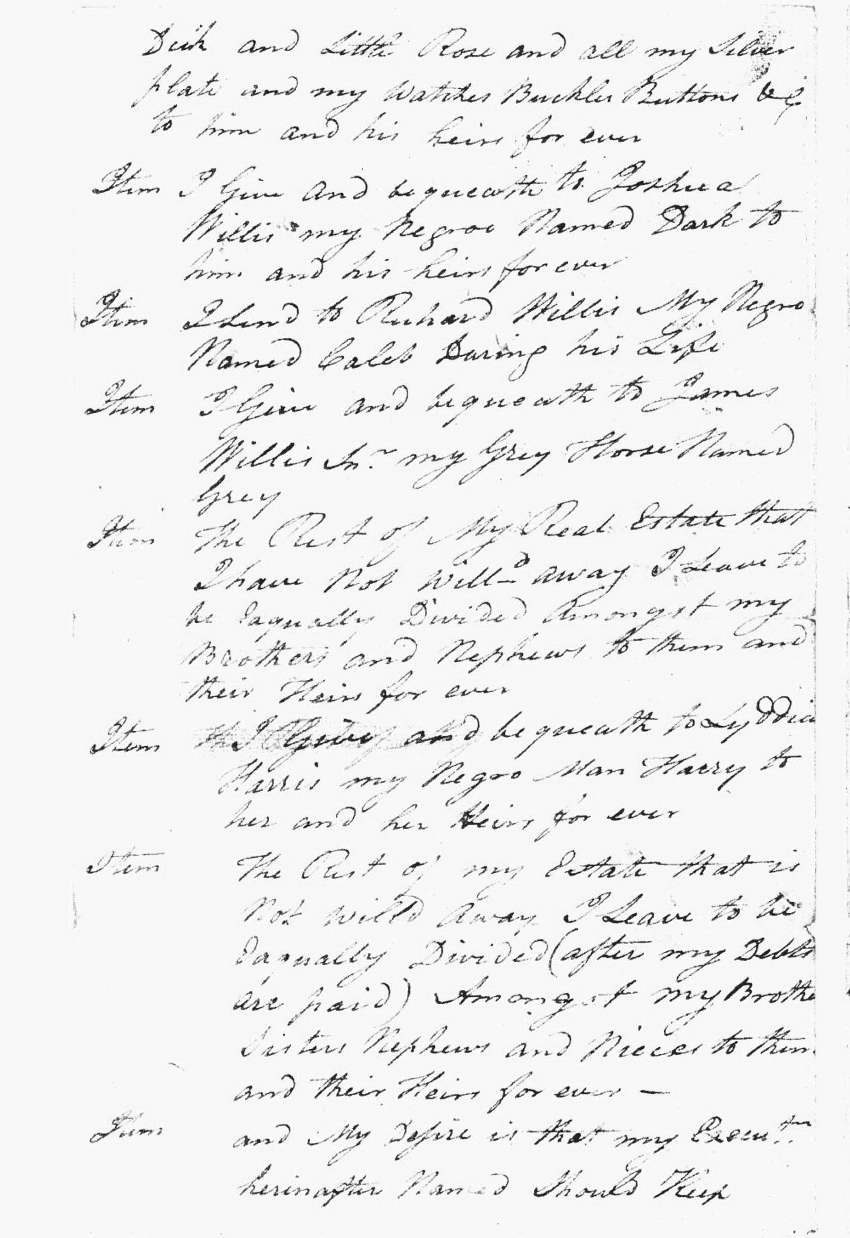 Dick and Little Rose and all my Silver
plate and my Watches Buckles Buttons &c
to him and his heirs for ever
Item I Give and bequeath to Joshua
Willis my Negroe Named Dark to
him and his heirs for ever
Item I Lend to Richard Willis My Negro
Named Caleb During his Life
Item I Give and bequeath to James
Willis Jnr my Grey Horse Named
Grey
Item The Rest of My Real Estate that
I have Not Willd away I Leave to
be Eaqually Divided Amongst my
Brothers and Nephews to them and
their Heirs for ever
Item I Give and bequeath to Lyddia
Harris my Negro Man Harry to
her and her Heirs for ever
Item The Rest of my Estate that is
Not willd away I Leave to be
Eaqually Divided (after my Debts
are paid) Amongst my Brothe
Sisters Nephews and Nieces to them
and their Heirs for ever —
Item and My Desire is that my Executrs
herinafter Named Should Keep